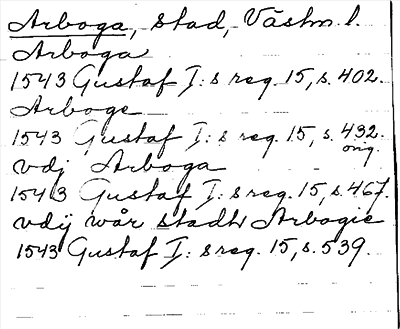 Arboga, stad, Västm. l.
Arboga
1543 Gustaf I: s reg. 15, s. 402.
Arboge
1543 Gustaf I: s reg. 15, s. 432.
orig.
vdj Arboga
1543 Gustaf I: s reg. 15, s. 467.
vdij wår stadt Arbogie
1543 Gustaf I: s reg. 15, s. 539.